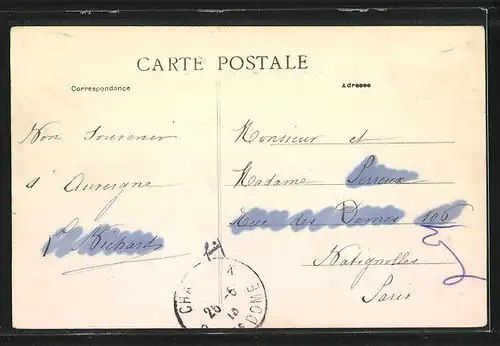 CARTE POSTALE
Correspondance
Adresse
Bon souvenir
d'Auvergne
Richard
Monsieur et
Madame Perreux
Rue des Dames 106
Batignolles
Paris
CHA
26 -8
DOME